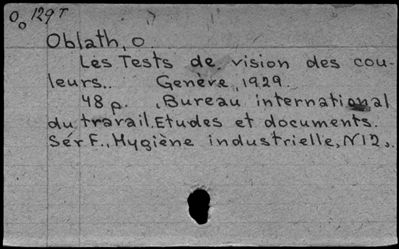 Oo 129T
Oblath, O.
Les Tests de vision des cou-
leurs.. Genève, 1929.
48 p. , Bureau international
du travail. Etudes et documents.
Sér F., Hygiène industrielle, N12,.